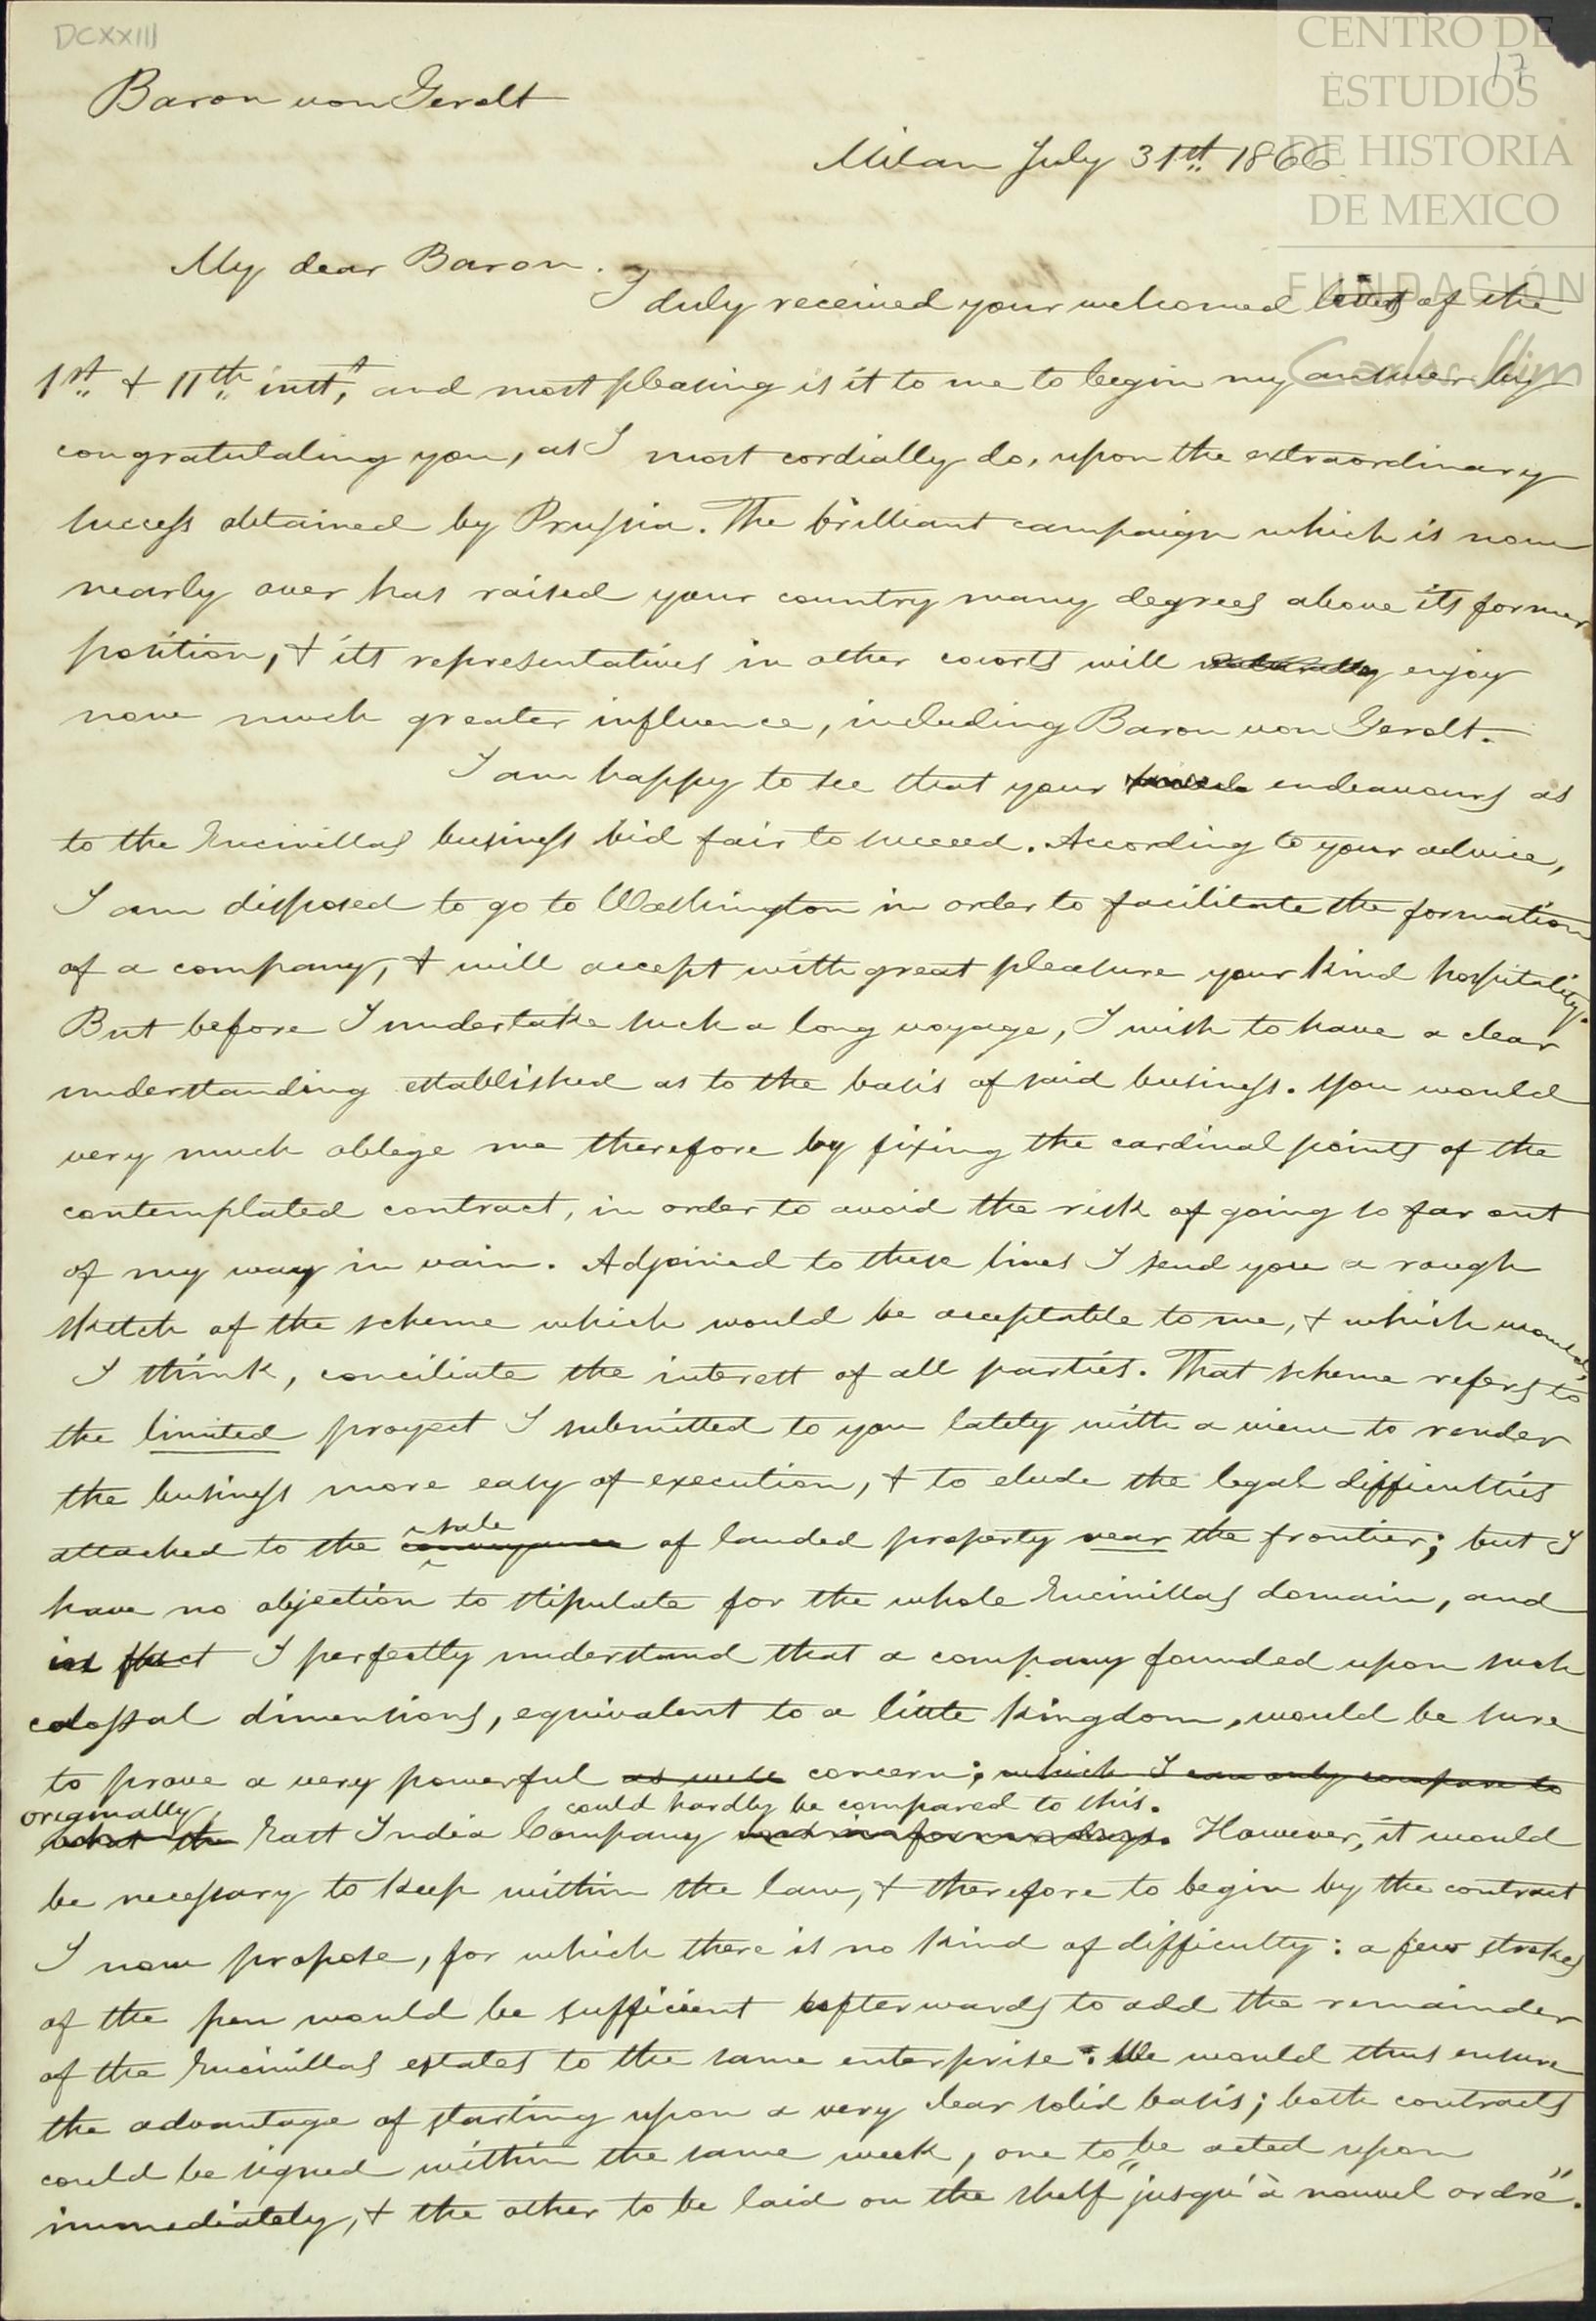 DCXXIII
17
CENTRO DE
ESTUDIOS
DE HISTORIA
DE MEXICO
FUNDACIÓN
Carlos Slim
Baron von Gerolt
Milan July 31st. 1866
My dear Baron.
I duly received your welcomed letters of the
1st. & 11th. instt, and most pleasing is it to me to begin my answer by
congratulating you, as I most cordially do, upon the extraordinary
success obtained by Prussia. The brilliant campaign which is now
nearly over has raised your country many degrees above its former
position, & its representatives in other courts will naturally enjoy
now much greater influence, including Baron von Gerolt.
I am happy to see that your endeavours as
to the Encinillas business bid fair to succeed. According to your advice,
I am disposed to go to Washington in order to facilitate the formation
of a company, & will accept with great pleasure your kind hospitality.
But before I undertake such a long voyage, I wish to have a clear
understanding established as to the basis of said business. You would
very much oblige me therefore by fixing the cardinal points of the
contemplated contract, in order to avoid the risk of going so far out
of my way in vain. Adjoined to these lines I send you a rough
sketch of the scheme which would be acceptable to me, & which would,
I think, conciliate the interest of all parties. That scheme refers to
the limited project I submitted to you lately with a view to render
the business more easy of execution, & to elude the legal difficulties
attached to the conveyance sale of landed property near the frontier; but I
have no objection to stipulate for the whole Encinillas domain, and
in fact I perfectly understand that a company founded upon such
colossal dimensions, equivalent to a little kingdom, would be sure
to prove a very powerful as well concern; which I can only compare to
originally could hardly be compared to this.
what the East India Company was in former days. However, it would
be necessary to keep within the law, & therefore to begin by the contract
I now propose, for which there is no kind of difficulty: a few strokes
of the pen would be sufficient afterwards to add the remainder
of the Encinillas estates to the same enterprise. We would thus ensure
the advantage of starting upon a very clear solid basis; both contracts
could be signed within the same week, one to be acted upon
immediately, & the other to be laid on the shelf "jusqu'à nouvel ordre".